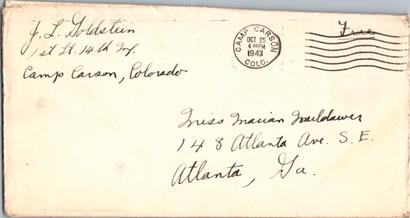 J. L. Goldstein
1st Lt. 14th Inf.
Camp Carson, Colorado
CAMP CARSON
OCT 25
4 PM
1943
COLO.
Free
Miss Marian
148 Atlanta Ave. S. E.
Atlanta, Ga.